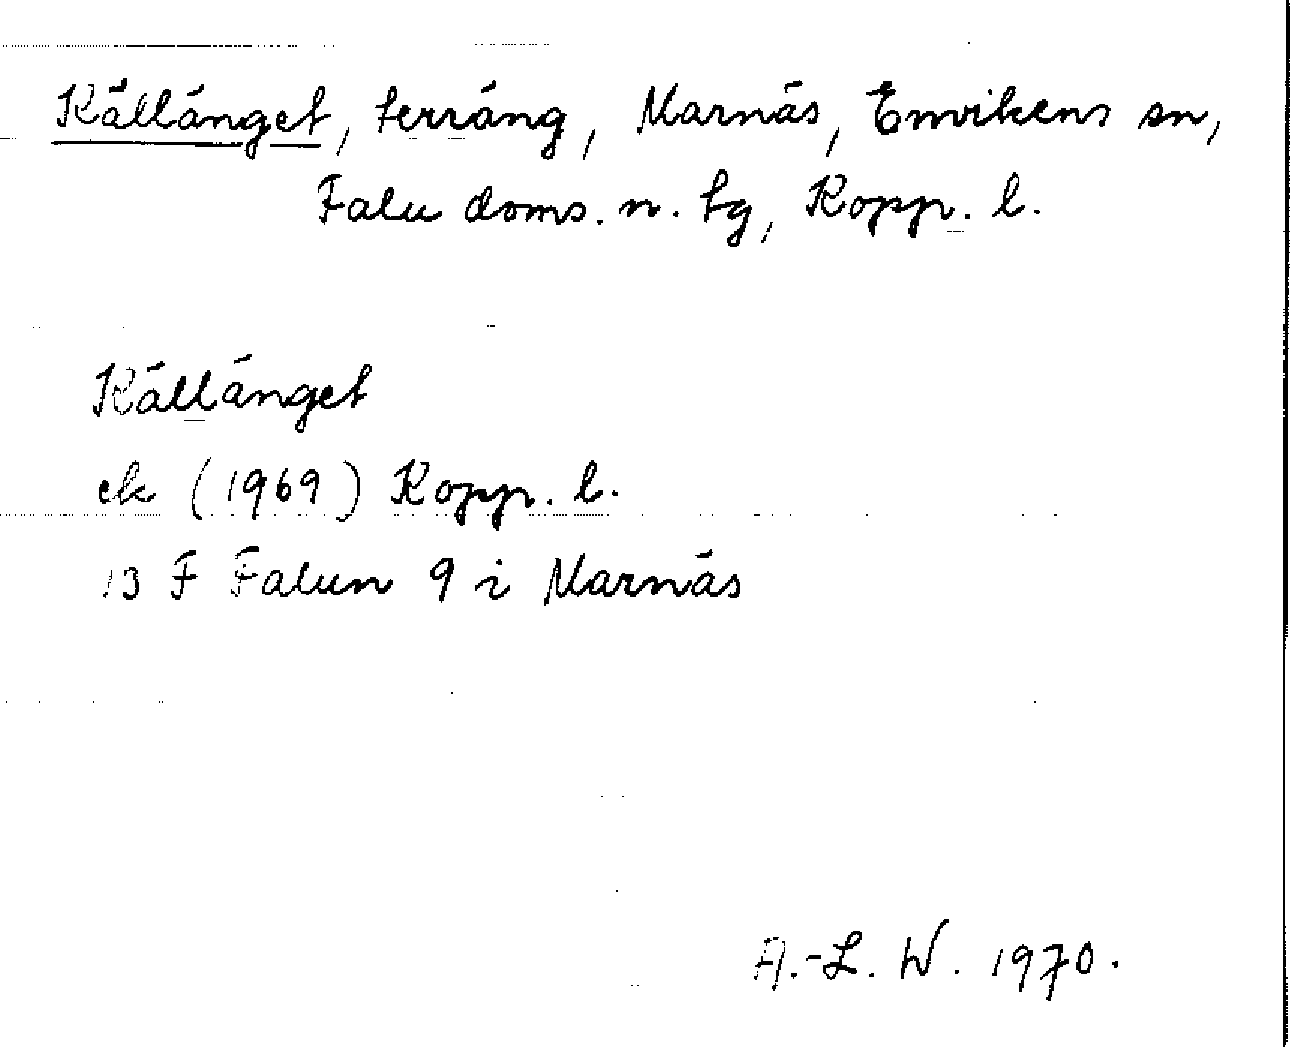 Källänget, terräng, Marnäs, Envikens sn,
Falu doms. n. tg, Kopp. l.
Källänget
ek (1969) Kopp. l.
13 F Falun 9 i Marnäs
A.-L. W. 1970.